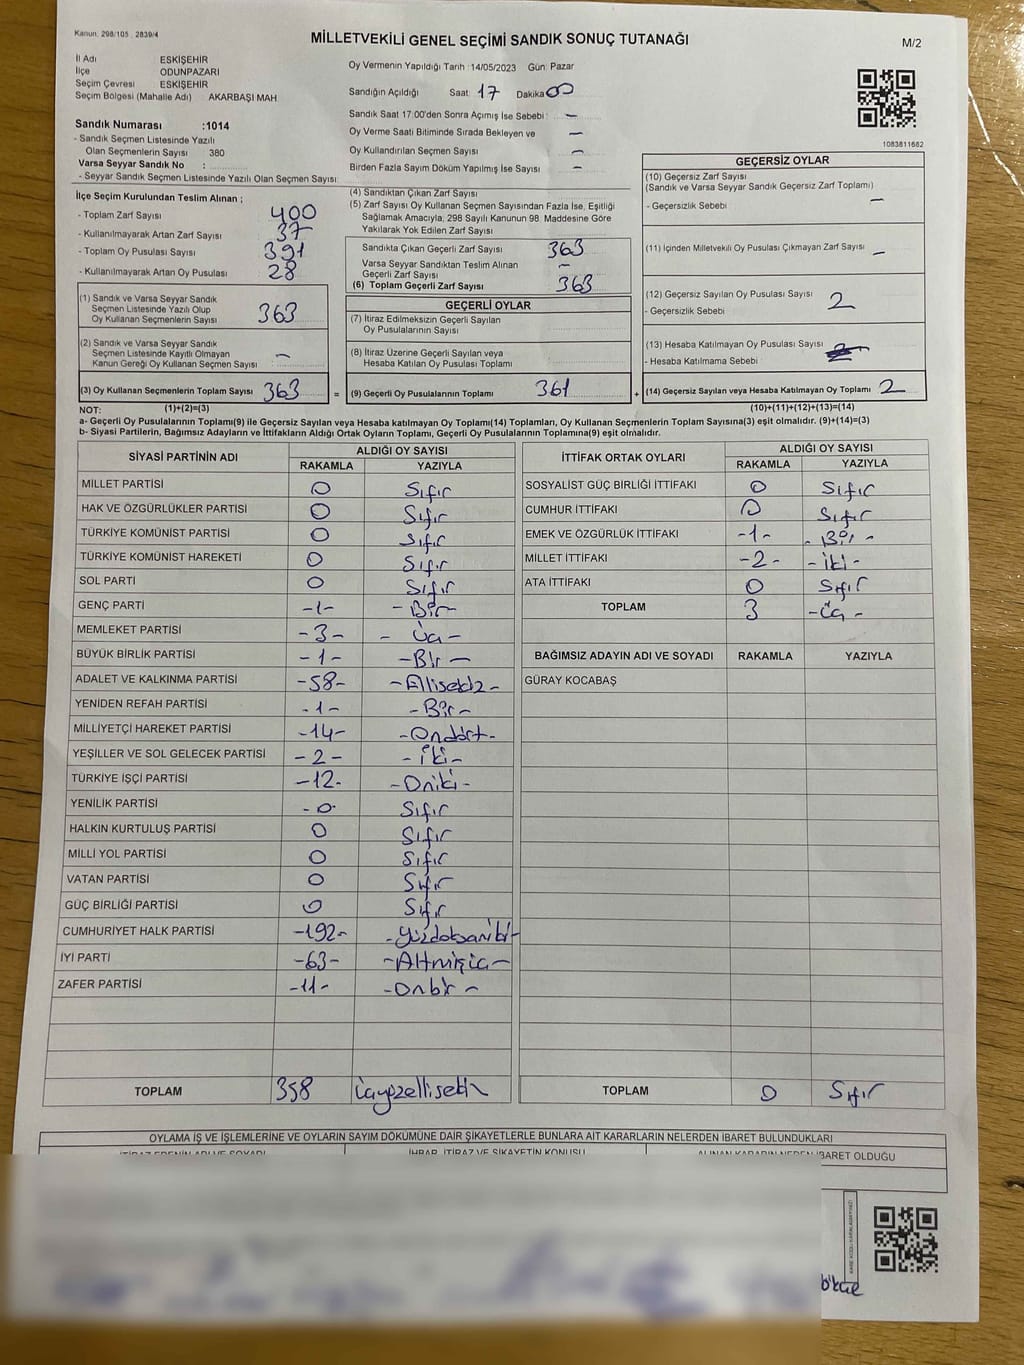 Kanun, 298/105 , 2839/4
MİLLETVEKİLİ GENEL SEÇİMİ SANDIK SONUÇ TUTANAĞI
M/2
İl Adı ESKİŞEHİR
İlçe ODUNPAZARI
Seçim Çevresi ESKİŞEHİR
Seçim Bölgesi (Mahalle Adı) AKARBAŞI MAH
Sandık Numarası :1014
- Sandık Seçmen Listesinde Yazılı
Olan Seçmenlerin Sayısı 380
Varsa Seyyar Sandık No :
- Seyyar Sandık Seçmen Listesinde Yazılı Olan Seçmen Sayısı:
Oy Vermenin Yapıldığı Tarih :14/05/2023 Gün: Pazar
Sandığın Açıldığı Saat: 17 Dakika 00
Sandık Saat 17:00'den Sonra Açımış İse Sebebi : -
Oy Verme Saati Bitiminde Sırada Bekleyen ve -
Oy Kullandırılan Seçmen Sayısı -
Birden Fazla Sayım Döküm Yapılmış İse Sayısı -
1083811682
İlçe Seçim Kurulundan Teslim Alınan ;
- Toplam Zarf Sayısı 400
- Kullanılmayarak Artan Zarf Sayısı 37
- Toplam Oy Pusulası Sayısı 391
- Kullanılmayarak Artan Oy Pusulası 28
(1) Sandık ve Varsa Seyyar Sandık
Seçmen Listesinde Yazılı Olup
Oy Kullanan Seçmenlerin Sayısı 363
(2) Sandık ve Varsa Seyyar Sandık
Seçmen Listesinde Kayıtlı Olmayan
Kanun Gereği Oy Kullanan Seçmen Sayısı -
(3) Oy Kullanan Seçmenlerin Toplam Sayısı 363 =
(4) Sandıktan Çıkan Zarf Sayısı
(5) Zarf Sayısı Oy Kullanan Seçmen Sayısından Fazla İse, Eşitliği
Sağlamak Amacıyla, 298 Sayılı Kanunun 98. Maddesine Göre
Yakılarak Yok Edilen Zarf Sayısı
Sandıkta Çıkan Geçerli Zarf Sayısı 363
Varsa Seyyar Sandıktan Teslim Alınan
Geçerli Zarf Sayısı -
(6) Toplam Geçerli Zarf Sayısı 363
GEÇERLİ OYLAR
(7) İtiraz Edilmeksizin Geçerli Sayılan
Oy Pusulalarının Sayısı
(8) İtiraz Üzerine Geçerli Sayılan veya
Hesaba Katılan Oy Pusulası Toplamı
(9) Geçerli Oy Pusulalarının Toplamı 361 +
GEÇERSİZ OYLAR
(10) Geçersiz Zarf Sayısı
(Sandık ve Varsa Seyyar Sandık Geçersiz Zarf Toplamı)
- Geçersizlik Sebebi -
(11) İçinden Milletvekili Oy Pusulası Çıkmayan Zarf Sayısı -
(12) Geçersiz Sayılan Oy Pusulası Sayısı 2
- Geçersizlik Sebebi
(13) Hesaba Katılmayan Oy Pusulası Sayısı
- Hesaba Katılmama Sebebi
(14) Geçersiz Sayılan veya Hesaba Katılmayan Oy Toplamı 2
NOT: (1)+(2)=(3) (10)+(11)+(12)+(13)=(14)
a- Geçerli Oy Pusulalarının Toplamı(9) ile Geçersiz Sayılan veya Hesaba katılmayan Oy Toplamı(14) Toplamları, Oy Kullanan Seçmenlerin Toplam Sayısına(3) eşit olmalıdır. (9)+(14)=(3)
b- Siyasi Partilerin, Bağımsız Adayların ve İttifakların Aldığı Ortak Oyların Toplamı, Geçerli Oy Pusulalarının Toplamına(9) eşit olmalıdır.
SİYASİ PARTİNİN ADI ALDIĞI OY SAYISI
RAKAMLA YAZIYLA
MİLLET PARTİSİ 0 Sıfır
HAK VE ÖZGÜRLÜKLER PARTİSİ 0 Sıfır
TÜRKİYE KOMÜNİST PARTİSİ 0 Sıfır
TÜRKİYE KOMÜNİST HAREKETİ 0 Sıfır
SOL PARTİ 0 Sıfır
GENÇ PARTİ -1- -Bir-
MEMLEKET PARTİSİ -3- - Üç -
BÜYÜK BİRLİK PARTİSİ -1- -Bir-
ADALET VE KALKINMA PARTİSİ -58- -Ellisekiz-
YENİDEN REFAH PARTİSİ -1- -Bir-
MİLLİYETÇİ HAREKET PARTİSİ -14- -Ondört-
YEŞİLLER VE SOL GELECEK PARTİSİ -2- -İki-
TÜRKİYE İŞÇİ PARTİSİ -12- -Oniki-
YENİLİK PARTİSİ -0- Sıfır
HALKIN KURTULUŞ PARTİSİ 0 Sıfır
MİLLİ YOL PARTİSİ 0 Sıfır
VATAN PARTİSİ 0 Sıfır
GÜÇ BİRLİĞİ PARTİSİ 0 Sıfır
CUMHURİYET HALK PARTİSİ -192-
İYİ PARTİ -63- -Altmışüç-
ZAFER PARTİSİ -11- -Onbir-
TOPLAM 358 Üçyüzellisekiz
İTTİFAK ORTAK OYLARI ALDIĞI OY SAYISI
RAKAMLA YAZIYLA
SOSYALİST GÜÇ BİRLİĞİ İTTİFAKI 0 Sıfır
CUMHUR İTTİFAKI 0 Sıfır
EMEK VE ÖZGÜRLÜK İTTİFAKI -1- -Bir-
MİLLET İTTİFAKI -2- -İki-
ATA İTTİFAKI 0 Sıfır
TOPLAM 3 -Üç-
BAĞIMSIZ ADAYIN ADI VE SOYADI RAKAMLA YAZIYLA
GÜRAY KOCABAŞ
TOPLAM 0 Sıfır
OYLAMA İŞ VE İŞLEMLERİNE VE OYLARIN SAYIM DÖKÜMÜNE DAİR ŞİKAYETLERLE BUNLARA AİT KARARLARIN NELERDEN İBARET BULUNDUKLARI
İTİRAZ EDENİN ADI VE SOYADI İHBAR, İTİRAZ VE ŞİKAYETİN KONUSU ALINAN KARARIN NEDEN İBARET OLDUĞU